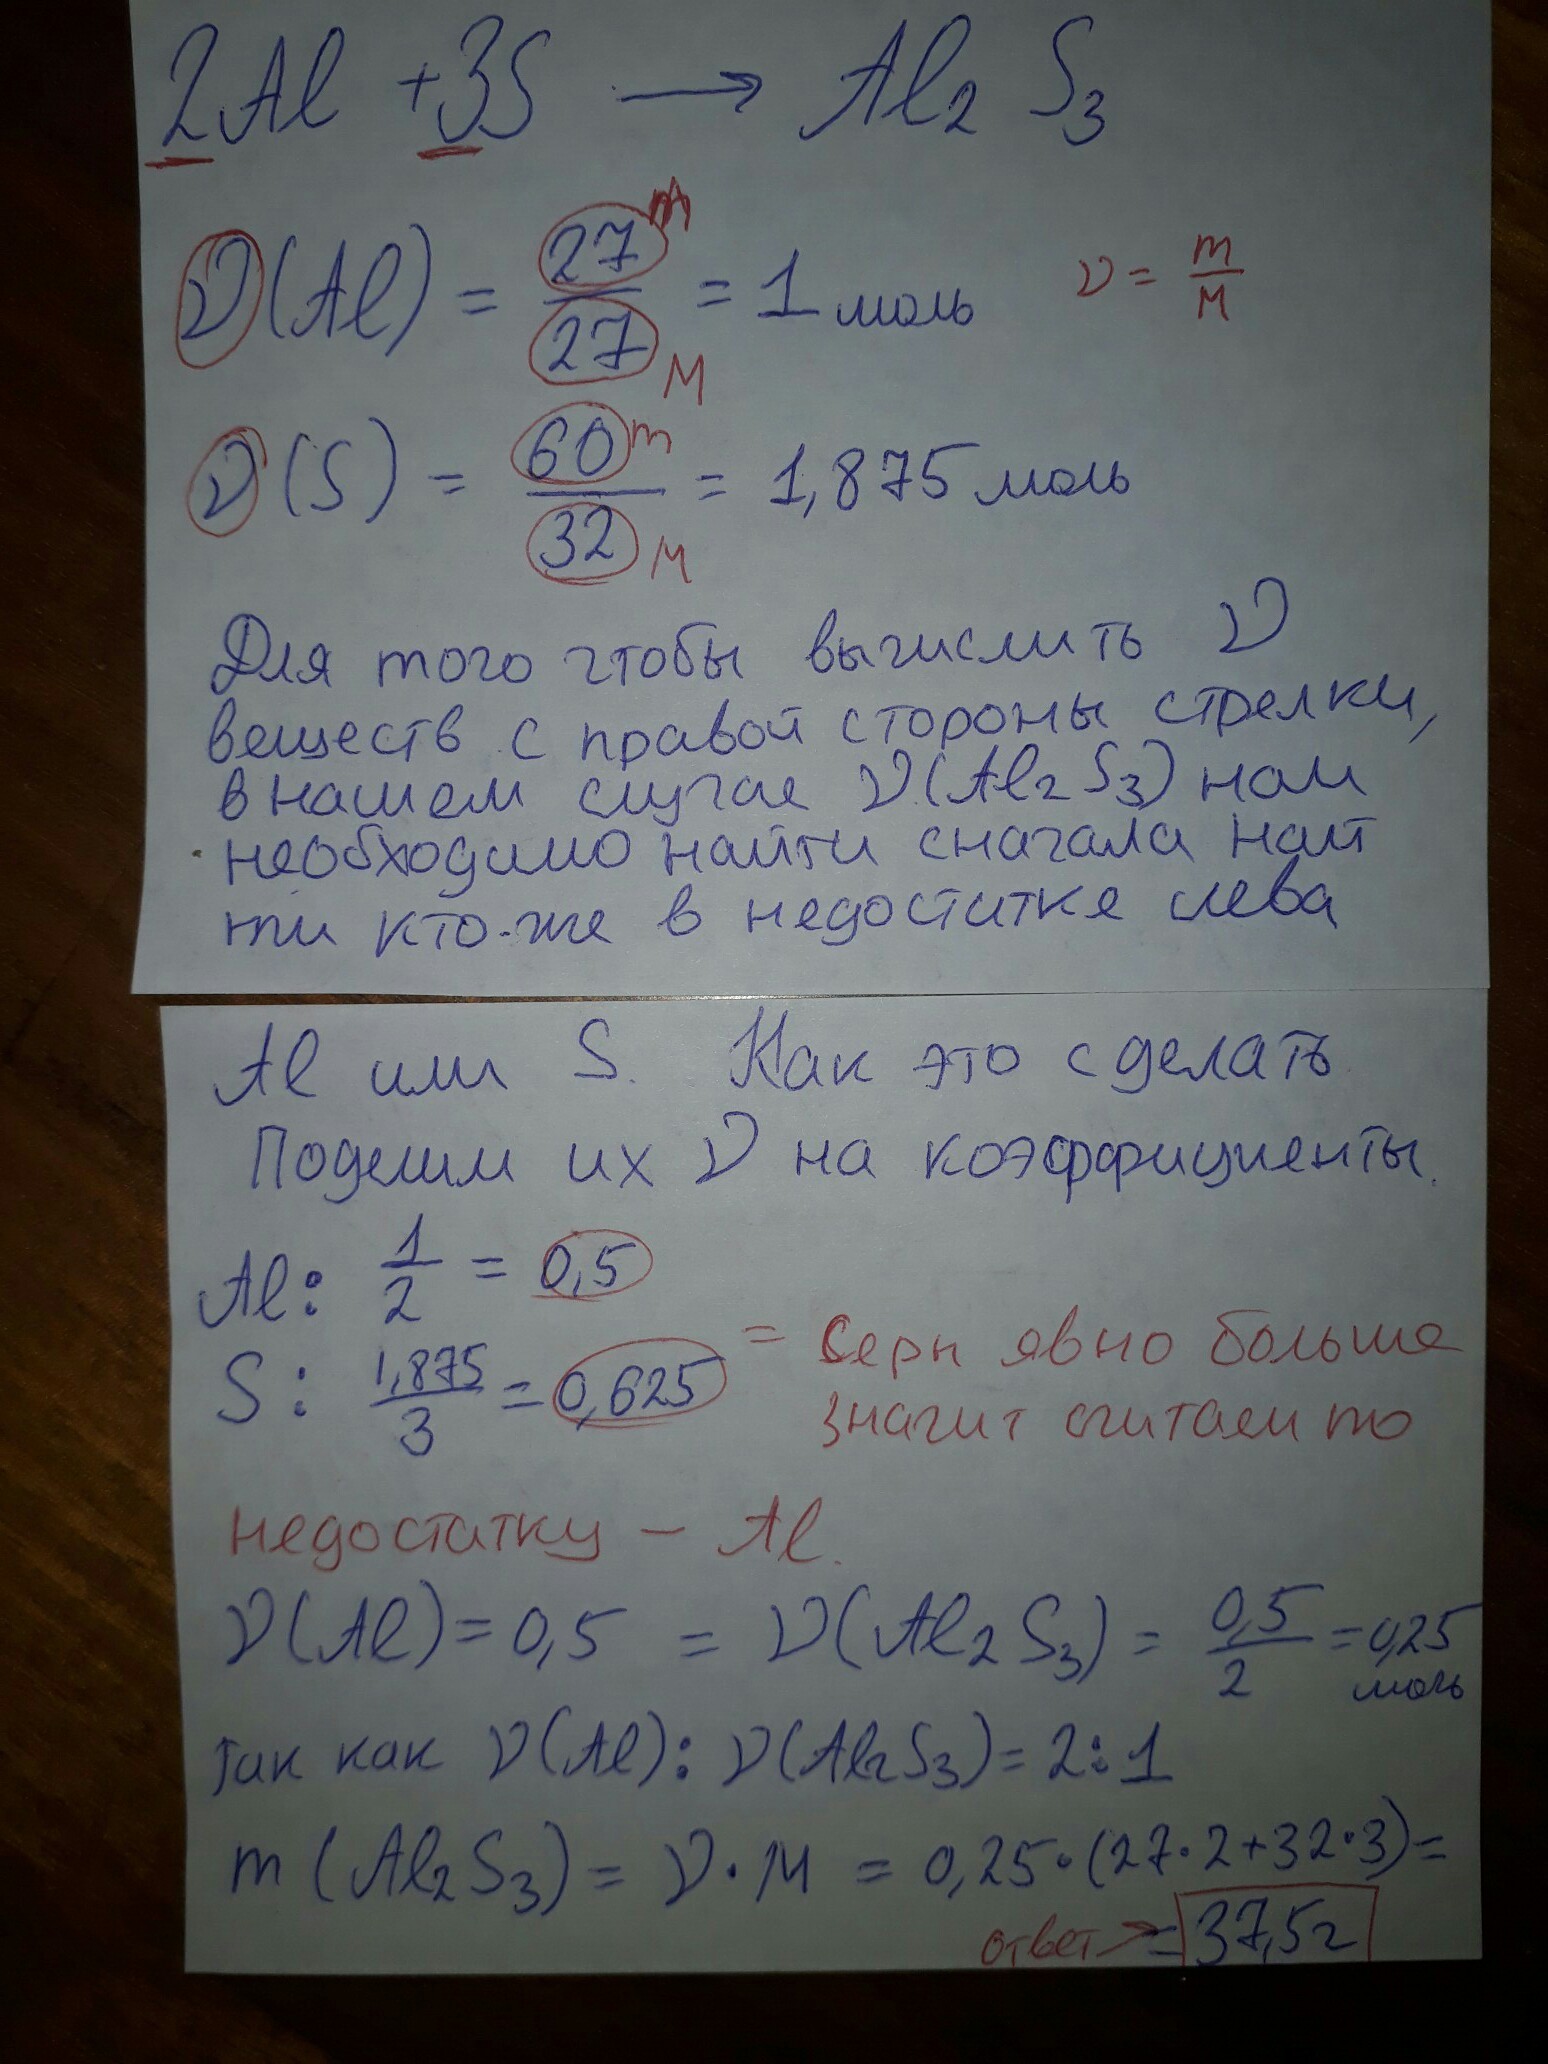 2Al + 3S → Al₂S₃
ν(Al) = 27 m / 27 M = 1 моль ν = m/M
ν(S) = 60 m / 32 M = 1,875 моль
Для того чтобы вычислить ν
веществ с правой стороны стрелки,
в нашем случае ν(Al₂S₃) нам
необходимо найти сначала най
ти кто-же в недостатке слева
Al или S. Как это сделать
Поделим их ν на коэффициенты.
Al: 1/2 = 0,5
S: 1,875/3 = 0,625 = Серы явно больше
значит считаем по
недостатку – Al.
ν(Al) = 0,5 = ν(Al₂S₃) = 0,5/2 = 0,25
моль
так как ν(Al) : ν(Al₂S₃) = 2:1
m(Al₂S₃) = ν·M = 0,25·(27·2+32·3) =
ответ → = 37,5г